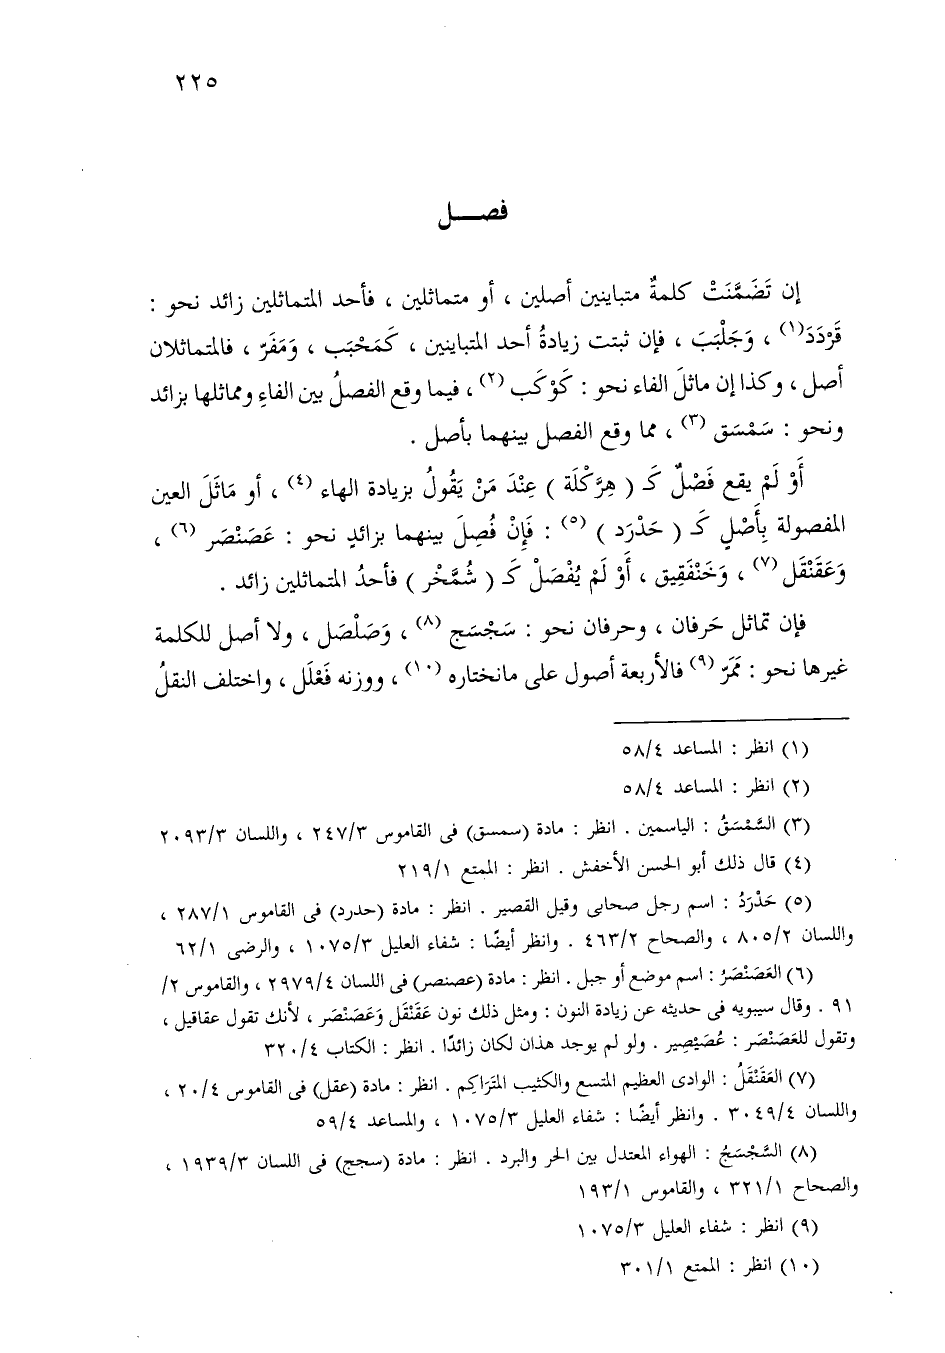 ٢٢٥
فصـــل
إن تَضَمَّنَتْ كلمةٌ متباينين أصلين ، أو متماثلين ، فأحد المتماثلين زائد نحو :
قَرْدَدَ(١) ، وَجَلْبَبَ ، فإن ثبتت زيادةُ أحد المتباينين ، كَمَحْبَب ، وَمَفَرّ ، فالمتماثلان
أصل ، وكذا إن ماثلَ الفاء نحو : كَوْكَب (٢) ، فيما وقع الفصلُ بين الفاءِ ومماثلها بزائد
ونحو : سَمْسَق (٣) ، مما وقع الفصل بينهما بأصل .
أَوْ لَمْ يقع فَصْلٌ كَـ ( هِرَّكْلَة ) عِنْدَ مَنْ يَقُولُ بزيادة الهاء (٤) ، أو مَاثَلَ العين
المفصولة بِأَصْلٍ كَـ ( حَدْرَد ) (٥) : فَإِنْ فُصِلَ بينهما بزائدٍ نحو : عَصَنْصَر (٦) ،
وَعَقَنْقَل (٧) ، وَخَنْفَقِيق ، أَوْ لَمْ يُفْصَلْ كَـ ( شُمَّخْر ) فأحدُ المتماثلين زائد .
فإن تماثل حَرفان ، وحرفان نحو : سَجْسَج (٨) ، وَصَلْصَل ، ولا أصل للكلمة
غيرها نحو : مَمَرّ (٩) فالأربعة أصول على مانختاره (١٠) ، ووزنه فَعْلَل ، واختلف النقلُ
(١) انظر : المساعد ٥٨/٤
(٢) انظر : المساعد ٥٨/٤
(٣) السَّمْسَقُ : الياسمين . انظر : مادة (سمسق) فى القاموس ٢٤٧/٣ ، واللسان ٢٠٩٣/٣
(٤) قال ذلك أبو الحسن الأخفش . انظر : الممتع ٢١٩/١
(٥) حَدْرَدُ : اسم رجل صحابى وقيل القصير . انظر : مادة (حدرد) فى القاموس ٢٨٧/١ ،
واللسان ٨٠٥/٢ ، والصحاح ٤٦٣/٢ . وانظر أيضًا : شفاء العليل ١٠٧٥/٣ ، والرضى ٦٢/١
(٦) العَصَنْصَرُ : اسم موضع أو جبل . انظر : مادة (عصنصر) فى اللسان ٢٩٧٩/٤ ، والقاموس ٢/
٩١ . وقال سيبويه فى حديثه عن زيادة النون : ومثل ذلك نون عَقَنْقَل وَعَصَنْصَر ، لأنك تقول عقاقيل ،
وتقول للعَصَنْصَر : عُصَيْصِير . ولو لم يوجد هذان لكان زائدًا . انظر : الكتاب ٣٢٠/٤
(٧) العَقَنْقَلُ : الوادى العظيم المتسع والكثيب المتَرَاكِم . انظر : مادة (عقل) فى القاموس ٢٠/٤ ،
واللسان ٣٠٤٩/٤ . وانظر أيضًا : شفاء العليل ١٠٧٥/٣ ، والمساعد ٥٩/٤
(٨) السَّجْسَجُ : الهواء المعتدل بين الحر والبرد . انظر : مادة (سجج) فى اللسان ١٩٣٩/٣ ،
والصحاح ٣٢١/١ ، والقاموس ١٩٣/١
(٩) انظر : شفاء العليل ١٠٧٥/٣
(١٠) انظر : الممتع ٣٠١/١